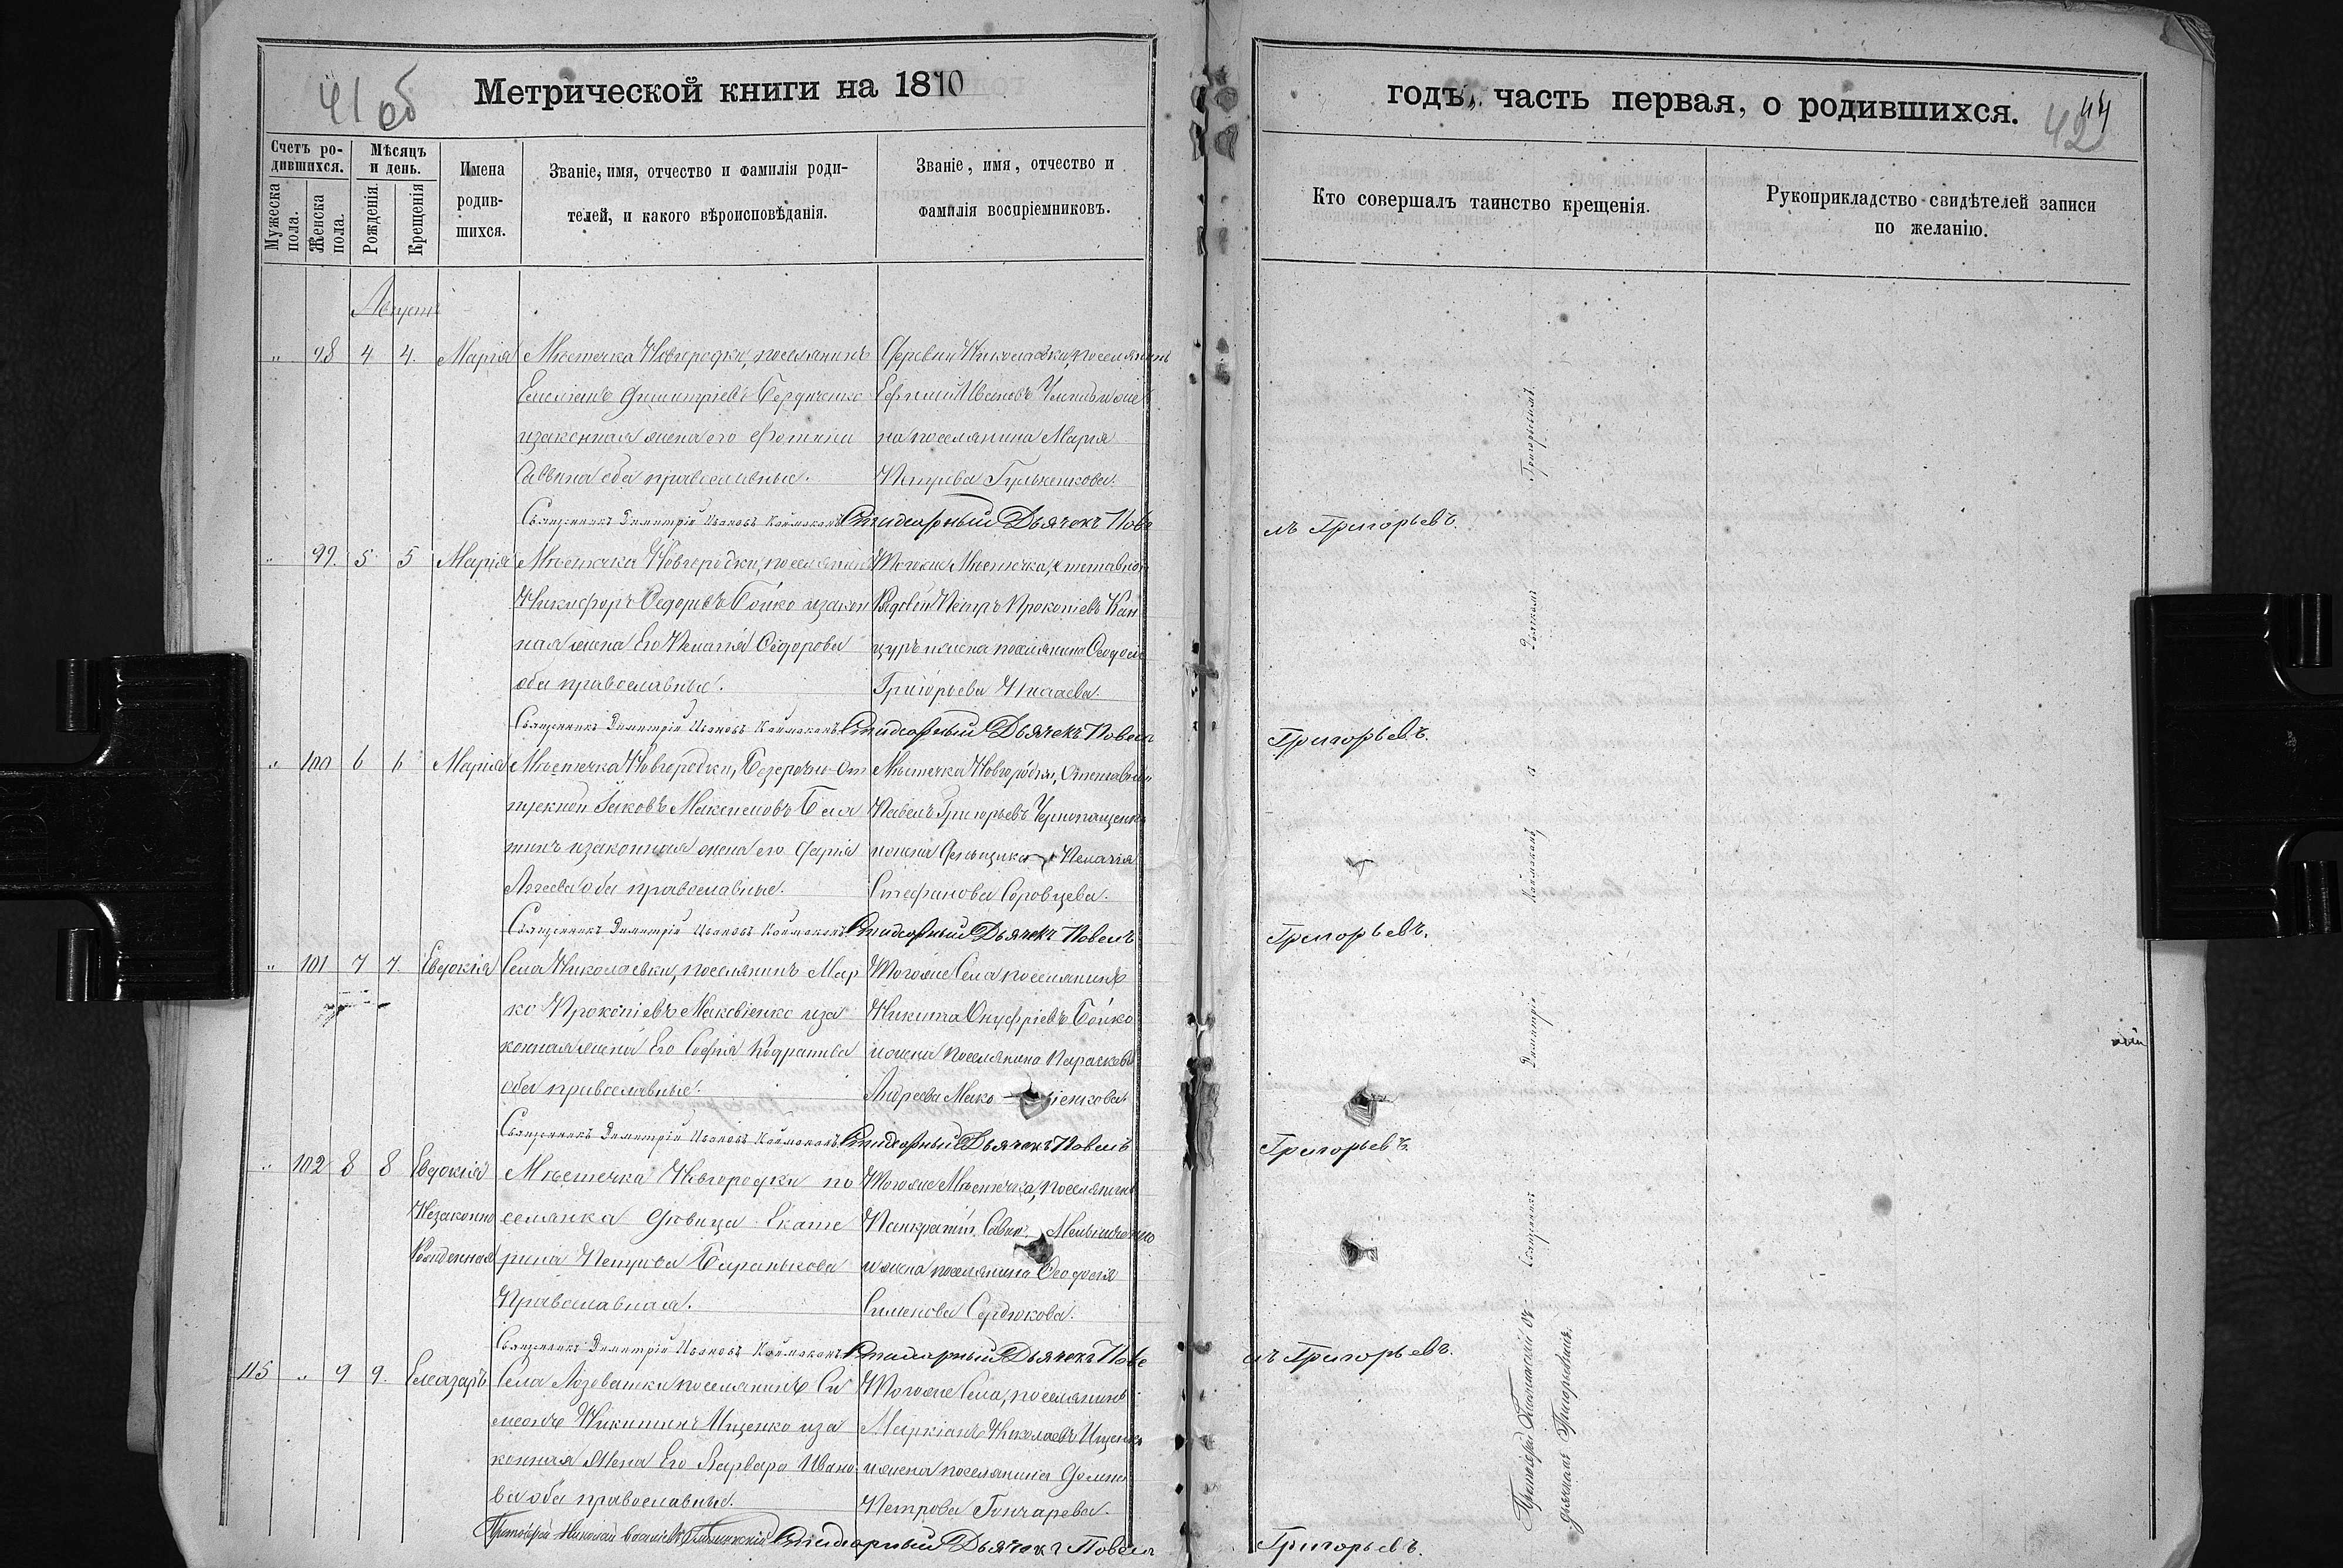 41 об
Метрической книги на 1870
годъ, часть первая, о родившихся.
42
44
Счетъ родившихся.
Мужеска пола.
Женска пола.
Мѣсяцъ и день.
Рожденія.
Крещенія
Имена родившихся.
Званіе, имя, отчество и фамилія родителей, и какого вѣроисповѣданія.
Званіе, имя, отчество и фамилія воспріемниковъ.
Кто совершалъ таинство крещенія.
Рукоприкладство свидѣтелей записи по желанію.
Августъ
" 98 4 4. Марія Мѣстечка Новгородки, поселянинъ
Емеліанъ Димитріевъ Бердниченко
изаконная жена его Фотинія
Саввина оба православные.
Деревни Николаевки, поселянинъ
Ефимій Ивановъ
на поселянина Марія
Петрова
Священникъ Димитрій Ивановъ Каймаканъ Стихарный Дьячекъ Паве
лъ Григорьевъ.
" 99. 5 5 Марія Мѣстечка Новгородки, поселянинъ
Никифоръ Ѳедоровъ Бойко изакон
ная жена Его Пелагія Сидорова
оба православные.
Тогоже Мѣстечка, отставной
Рядовой Петръ Прокопіевъ Кан
цуръ ижена поселянина Ѳеодосія
Григорьева
Священникъ Димитрій Ивановъ Каймаканъ Стихарный Дьячекъ Павелъ
Григорьевъ.
" 100 6 6 Марія Мѣстечка Новгородки, Безсрочно От
пускной Іаковъ Максимовъ Бела
тинъ изаконная жена его Дарія
оба православные.
Мѣстечка Новгородки, Отставный
Павелъ Григорьевъ
ижена Пелагія
Стефанова
Священникъ Димитрій Ивановъ Каймаканъ Стихарный Дьячекъ Павелъ
Григорьевъ.
" 101 7 7. Евдокія Села Николаевки, поселянинъ Мар
ко Прокопіевъ Маковіенко иза
конная жена Его Софія Кодратива
оба православные.
Тогоже Села поселянинъ
Никита Онуфріевъ Бойко
ижена поселянина Параскева
Андреева Мако іенкова
Священникъ Димитрій Ивановъ Каймаканъ Стихарный Дьячекъ Павелъ
Григорьевъ.
" 102 8 8 Евдокія Незаконно Рожденная
Мѣстечка Новгородки по
селянка Дѣвица Екате
рина Петрова Баранькова
Православная.
Тогоже Мѣстечка, поселянинъ
Панкратій Савин Мельниченко
ижена поселянина Ѳеодосія
Симонова Сердюкова.
Священникъ Димитрій Ивановъ Каймаканъ Стихарный Дьячекъ Паве
лъ Григорьевъ.
115 " 9 9. Елеазаръ Села Лозоватки поселянинъ Си
меонъ Никитинъ Ищенко иза
конная жена Его Варвара Ивано
ва оба православные.
Тогоже Села, поселянинъ
Маркіанъ Николаевъ Ищенко
ижена поселянина Домни
Петрова Гончарева.
Протоіерей Николай Стихарный Дьячекъ Павелъ
Григорьевъ.
Протоіерей
дьячкомъ Григорьевымъ.
Священникъ Димитрій Каймаканъ с
Дьячкомъ Григорьевымъ.